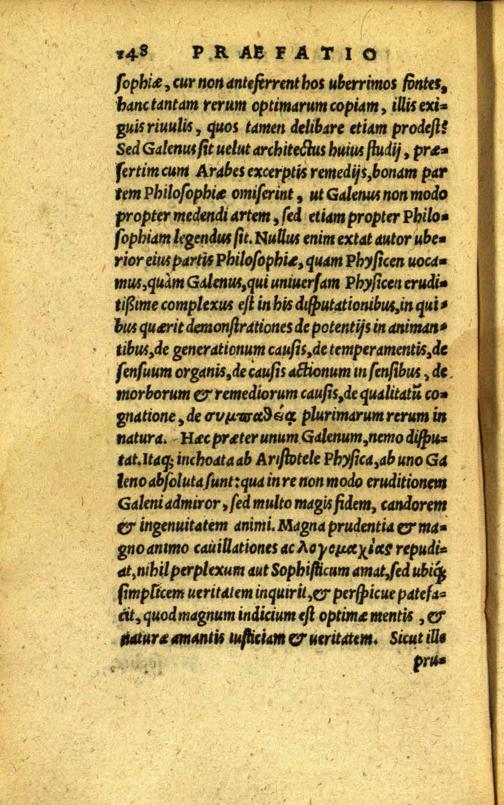 148 PRAEFATIO
ſophiæ, cur non anteferrent hos uberrimos fontes,
hanc tantam rerum optimarum copiam, illis exi=
guis riuulis, quos tamen delibare etiam prodeſt?
Sed Galenus ſit uelut architectus huius ſtudij, præ=
ſertim cum Arabes excerptis remedijs, bonam par
tem Philoſophiæ omiſerint, ut Galenus non modo
propter medendi artem, ſed etiam propter Philo=
ſophiam legendus ſit. Nullus enim extat autor ube=
rior eius partis Philoſophiæ, quam Phyſicen uoca=
mus, quàm Galenus, qui uniuerſam Phyſicen erudi=
tißime complexus eſt in his diſputationibus, in qui=
bus quærit demonſtrationes de potentijs in animan=
tibus, de generationum cauſis, de temperamentis, de
ſenſuum organis, de cauſis actionum in ſenſibus, de
morborum & remediorum cauſis, de qualitatũ co=
gnatione, de συμπαθέιᾳ plurimarum rerum in
natura. Hæc præter unum Galenum, nemo diſpu=
tat. Itaq; inchoata ab Ariſtotele Phyſica, ab uno Ga
leno abſoluta ſunt: qua in re non modo eruditionem
Galeni admiror, ſed multo magis fidem, candorem
& ingenuitatem animi. Magna prudentia & ma=
gno animo cauillationes ac λογομαχίας repudi=
at, nihil perplexum aut Sophiſticum amat, ſed ubiq;
ſimplicem ueritatem inquirit, & perſpicue patefa=
cit, quod magnum indicium eſt optimæ mentis, &
naturæ amantis iuſticiam & ueritatem. Sicut ille
pru=